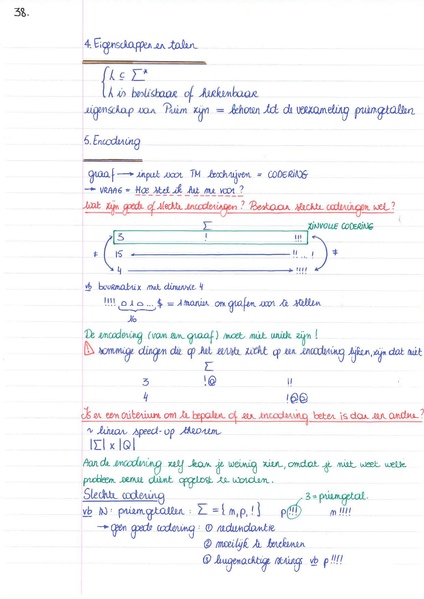 38.
4. Eigenschappen en talen
{ h ⊆ Σ*
h is beslisbaar of herkenbaar
eigenschap van Priem zijn = behoren tot de verzameling priemgetallen
5. Encodering
graaf → input voor TM beschrijven = CODERING
→ VRAAG = Hoe stel ik het me voor?
Wat zijn goede of slechte encoderingen? Bestaan slechte coderingen wel?
Σ ZINVOLLE CODERING
3 ! !!!
* 15 → !! ... ! *
4 → !!!!
vb bourmatrix met dimensie 4
!!!! 0 1 0 ... $ = 1 manier om grafen voor te stellen
16
De encodering (van een graaf) moet niet uniek zijn!
! sommige dingen die op het eerste zicht op een encodering lijken, zijn dat niet
Σ
3 !@ !!
4 !@@
Is er een criterium om te bepalen of een encodering beter is dan een andere?
~ linear speed-up theorem
|Σ| x |Q|
Aan de encodering zelf kan je weinig zien, omdat je niet weet welk
probleem ermee dient opgelost te worden.
Slechte codering 3 = priemgetal
vb ℕ: priemgetallen: Σ = { n, p, ! } p!!! n!!!!
→ geen goede codering: ① redundantie
② moeilijk te berekenen
③ leugenachtige strings vb p!!!!